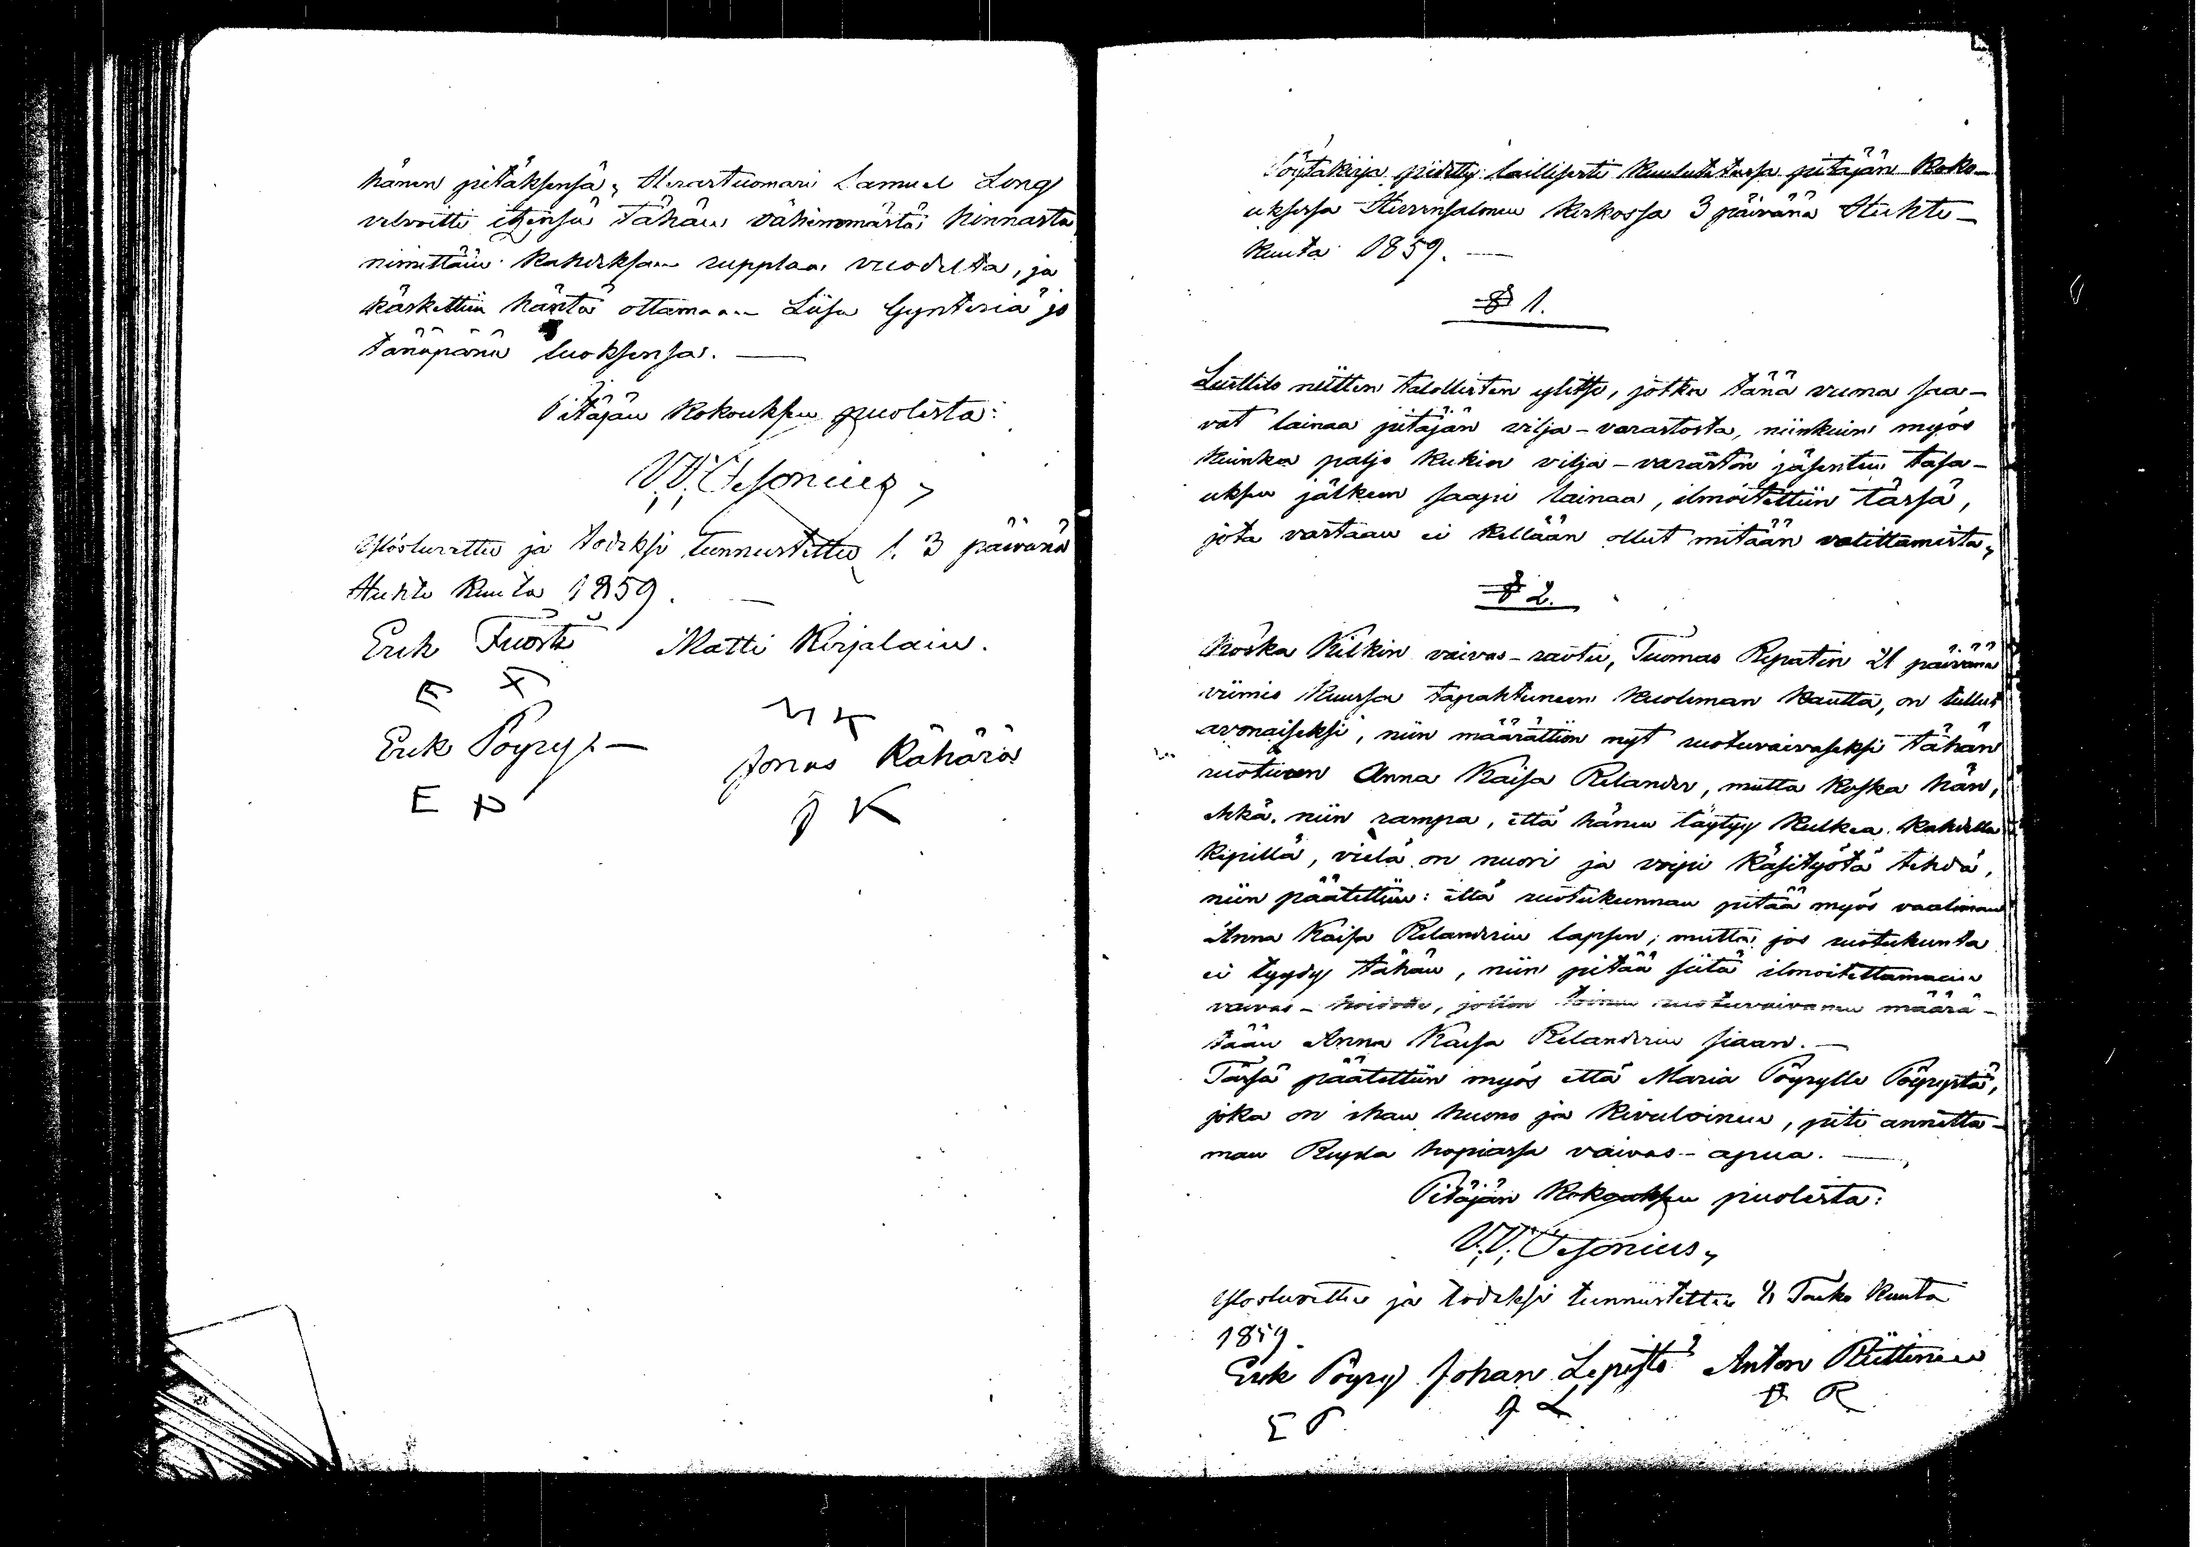 hänen pitäksensä, Herastuomari Samuel Long
velvoitti itzensä tähän vähimmästä hinnasta
nimittäin kahdeksan rupplaa vuodelta, ja
käskettiin häntä ottamaan Liisa Gynteriä jo
tänäpänä luoksensa. —
Pitäjän Kokouksen puolesta:
W. W. Cesonius,
Ylösluvettu ja todeksi tunnustettu 1. 3 päivänä
Huhti kuuta 1859. —
Erik Tuosti Matti Kirjalain.
E T
M K
Erik Pöyry. — Jonas Kähärä
E P J K
Pöytäkirja pidetty laillisesti kuulutetussa pitäjän koko-
uksessa Hirvensalmen kirkossa 3 päivänä Huhti-
kuuta 1859. —
§ 1.
Luettelo niitten talollisten ylitse, jotka tänä vuona saa-
vat lainaa pitäjän vilja-varastosta, niinkuin myös
kuinka paljo kukin vilja-varaston jäsenten tasa-
uksen jälkeen saapi lainaa, ilmoitettiin tässä,
jota vastaan ei kellään ollut mitään valittamista,
§ 2.
Koska Kilkin vaivas-ruotu, Tuomas Repatin 21 päivänä
viimis kuussa tapahtuneen kuoleman kautta, on tullut
avonaiseksi, niin määrättiin nyt ruotuvaivaseksi tähän
ruotuun Anna Kaisa Relander, mutta koska hän,
ehkä niin rampa, että hänen täytyy kulkea kahdella
kepillä, vielä on nuori ja voipi käsityötä tehdä,
niin päätettiin: että ruotukunnan pitää myös vaaliman
Anna Kaisa Relanderin lapsen; mutta jos ruotukunta
ei tyydy tähän, niin pitää siitä ilmoitettamaan
vaivas-hoidolle, jolloin toinen ruotuvaivanen määrä-
tään Anna Kaisa Relanderin siaan. —
Tässä päätettiin myös että Maria Pöyrylle Pöyrystä,
joka on ihan huono ja kivuloinen, piti annetta-
man Rupla hopiassa vaivas-apua. —
Pitäjän Kokouksen puolesta:
W. W. Cesonius,
Ylösluvettu ja todeksi tunnustettu Touko kuuta
1859.
Erik Pöyry Johan Lepistö Anton Riittinen
E P J L A R